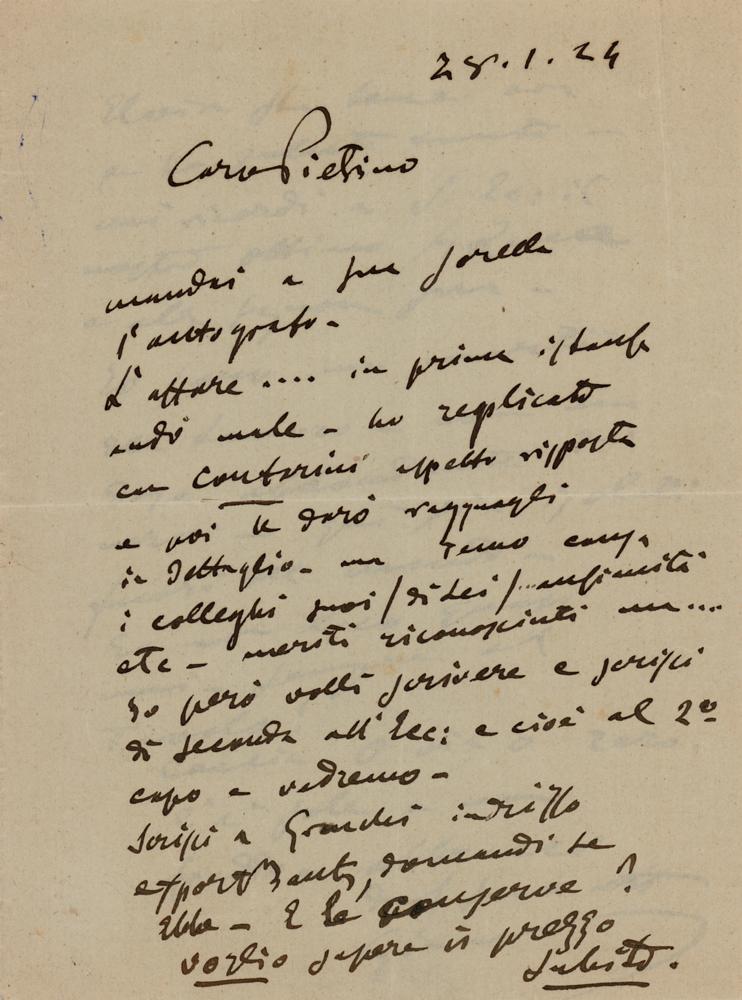 28.1.24
Caro Pietrino
mandai a sua sorella
l'autografo -
L'affare .... in prima istanza
andò male - ho replicato
con Contarini aspetto risposta
e poi te darò ragguagli
in dettaglio - ma temo causa
i colleghi suoi / di Lei / anzianità
etc - meriti riconosciuti ma ....
Io però volli scrivere e scrissi
di seconda all'Ecc: e cioè al 2º
capo e vedremo -
Scrissi a Grandis indirizzo
domandi se
Ebbe - E le conserve ?
voglio sapere il prezzo
subito.